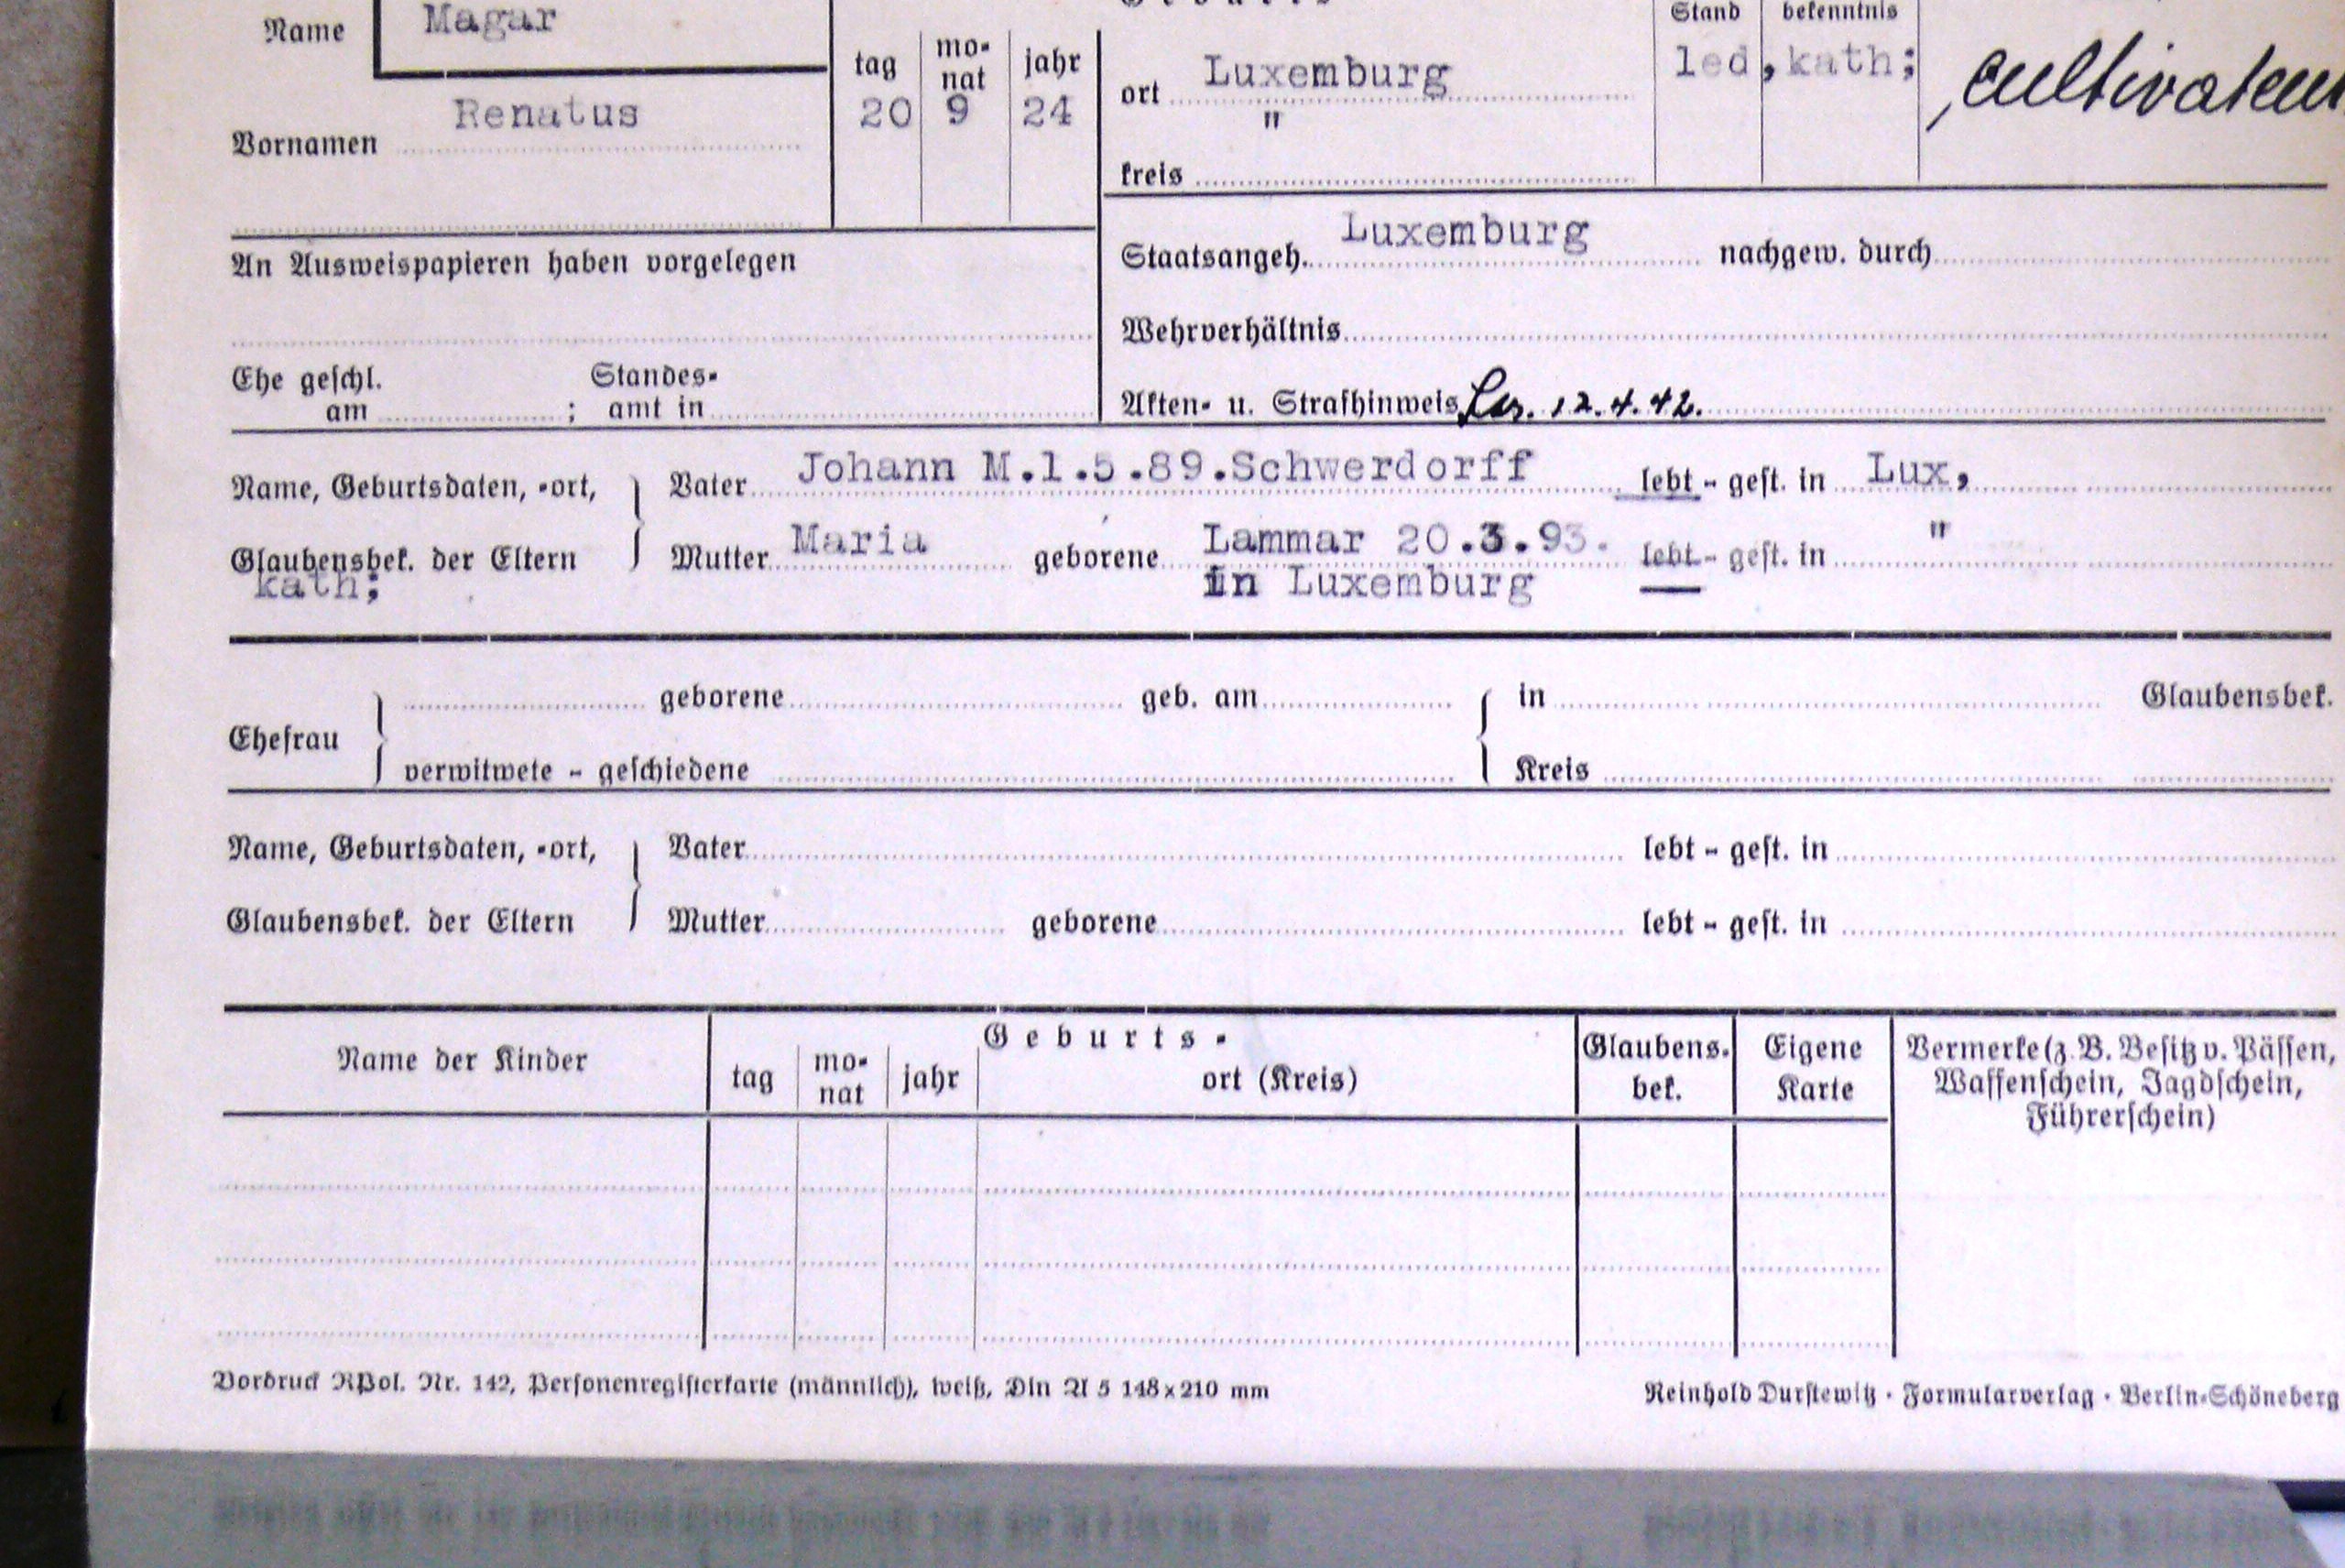 Name Magar
Stand bekenntnis
tag mo- nat jahr
ort Luxemburg
led, kath;
cultivateur
Vornamen Renatus
20 9 24
"
kreis
An Ausweispapieren haben vorgelegen
Staatsangeh. Luxemburg nachgew. durch
Wehrverhältnis
Ehe geschl. am ; Standes- amt in
Akten- u. Strafhinweis 12.4.42.
Name, Geburtsdaten, -ort, Vater Johann M.1.5.89.Schwerdorff lebt - gest. in Lux,
Glaubensbek. der Eltern Mutter Maria geborene Lammar 20.3.93. lebt - gest. in "
kath; in Luxemburg
geborene geb. am in Glaubensbek.
Ehefrau
verwitwete - geschiedene Kreis
Name, Geburtsdaten, -ort, Vater lebt - gest. in
Glaubensbek. der Eltern Mutter geborene lebt - gest. in
Name der Kinder
Geburts-
tag mo- nat jahr ort (Kreis)
Glaubens- bek.
Eigene Karte
Vermerke (z. B. Besitz v. Pässen,
Waffenschein, Jagdschein,
Führerschein)
Vordruck RPol. Nr. 142, Personenregisterkarte (männlich), weiß, Din A 5 148x210 mm
Reinhold Durstewitz · Formularverlag · Berlin-Schöneberg